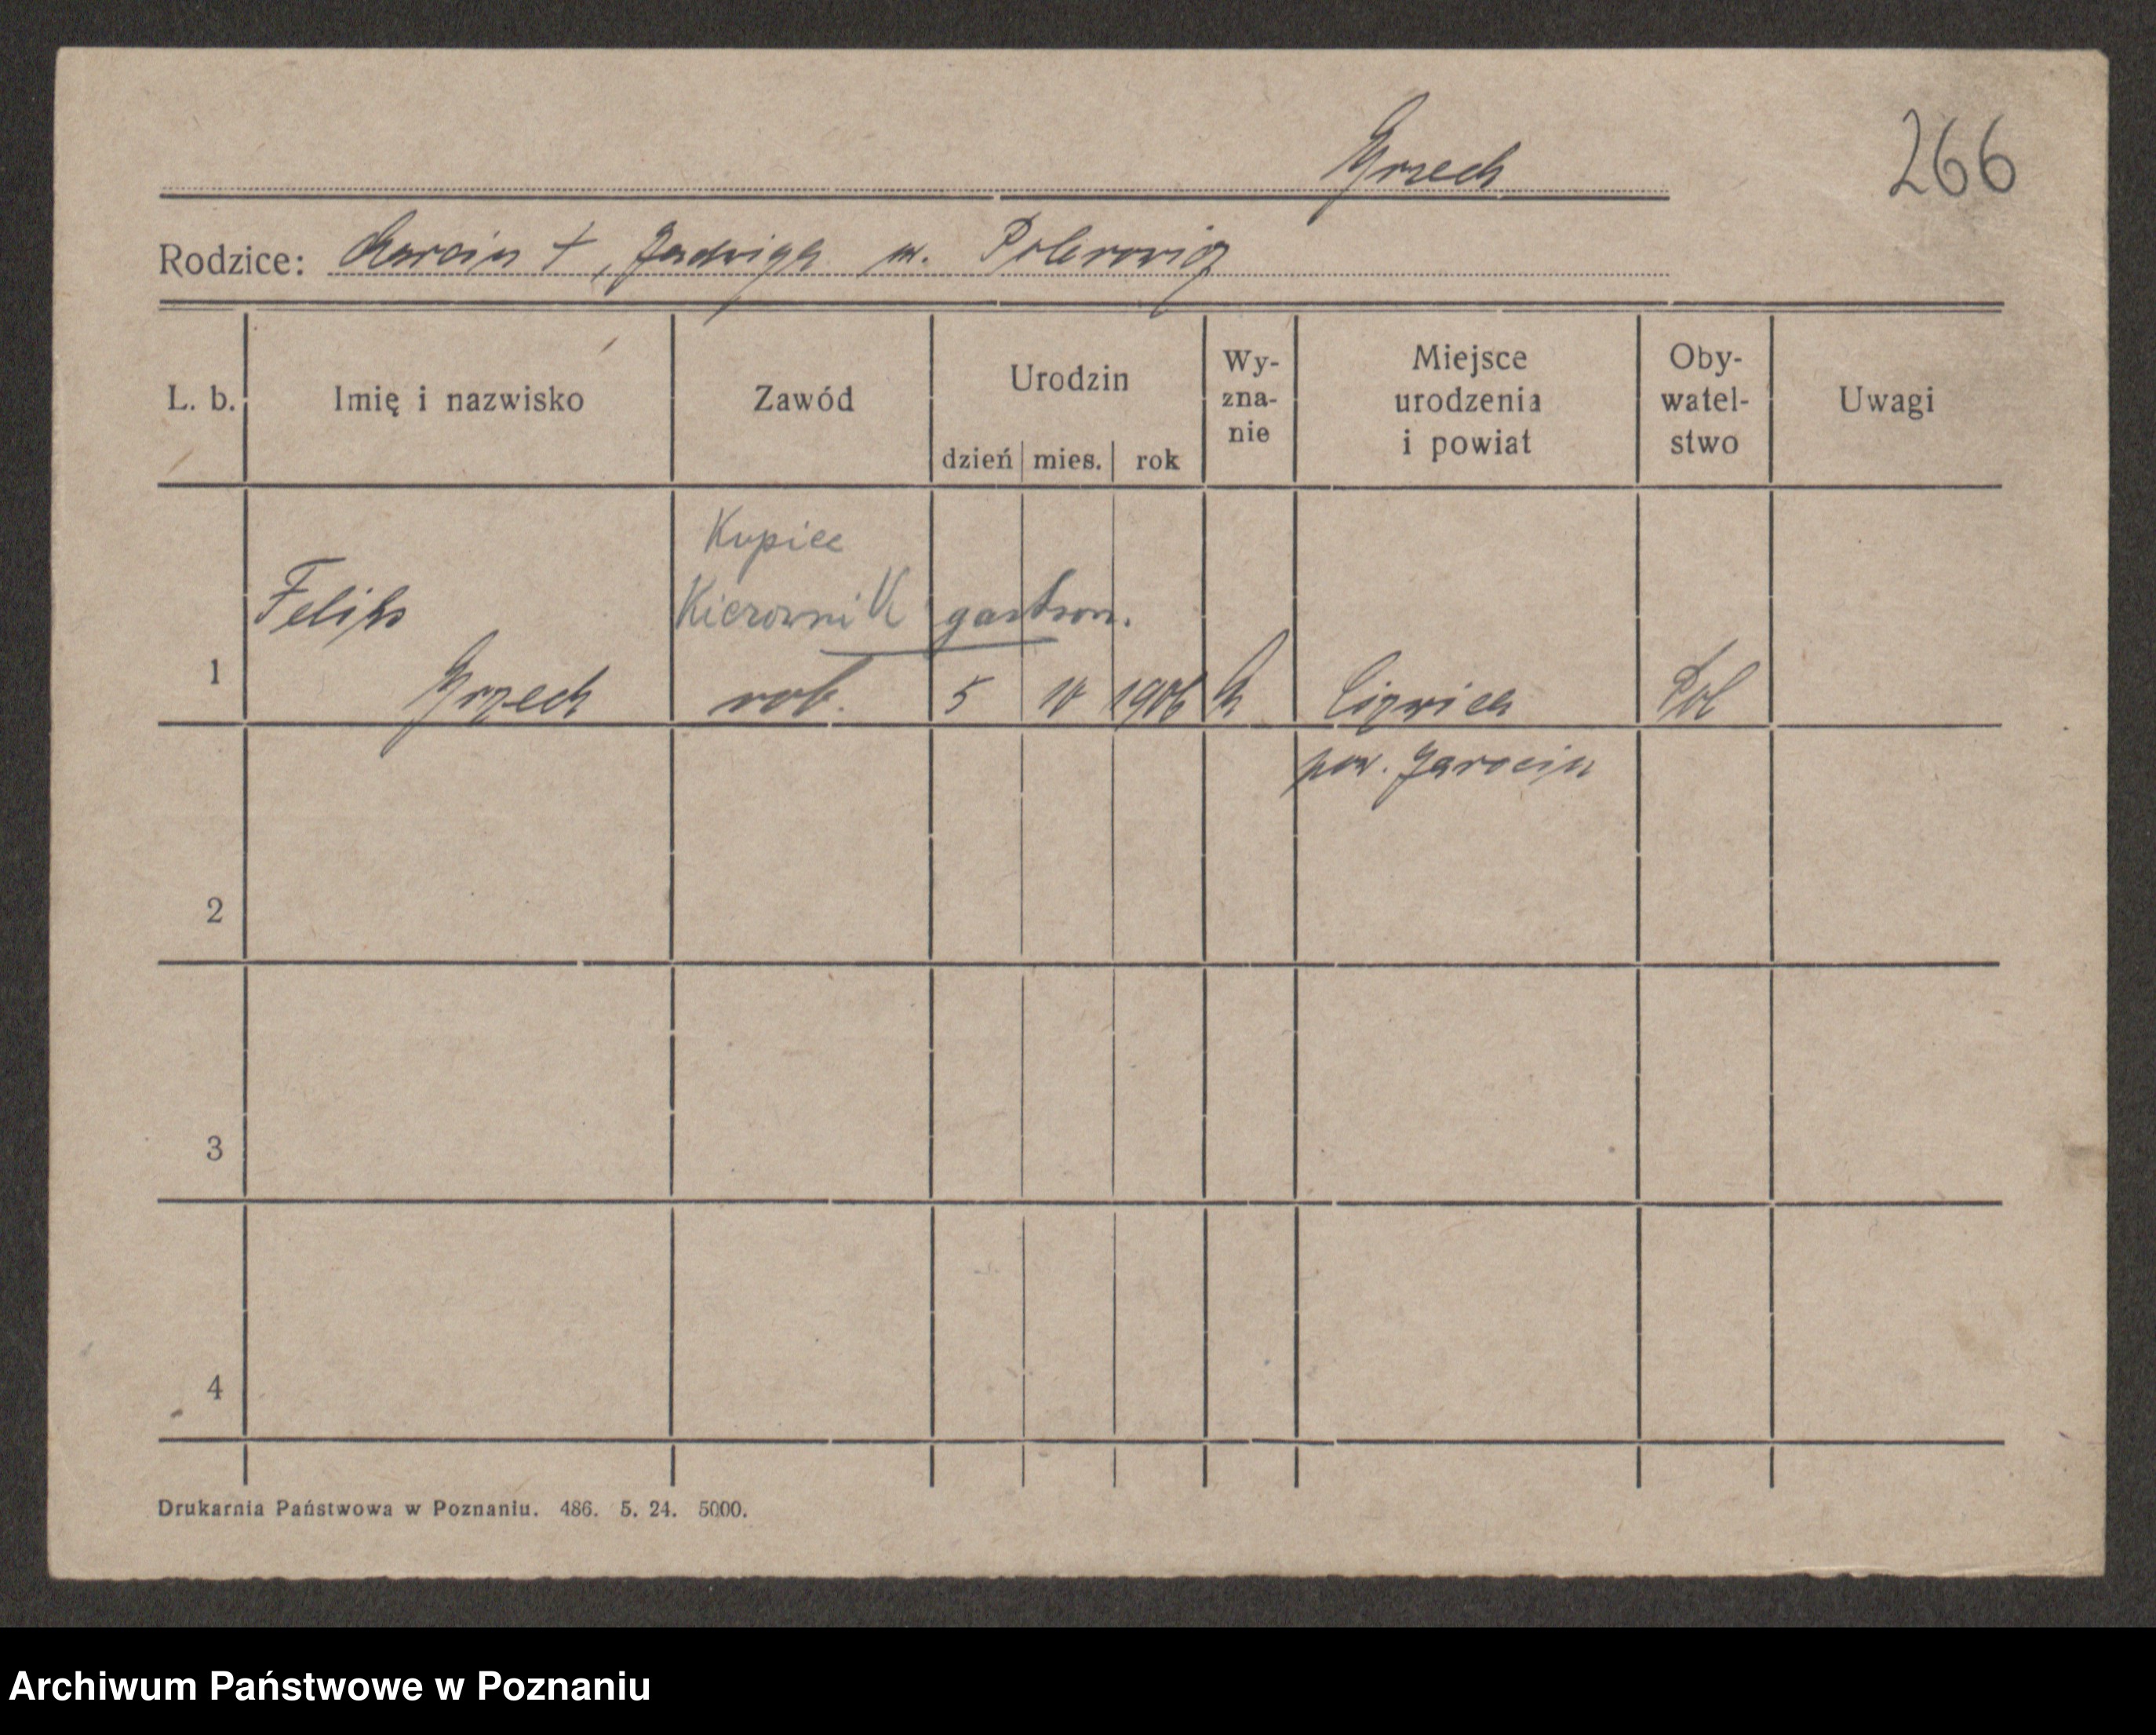 Grzech
266
Rodzice: Marcin +, Jadwiga
L. b. Imię i nazwisko Zawód Urodzin dzień mies. rok Wy-zna-nie Miejsce urodzenia i powiat Oby-watel-stwo Uwagi
Kupiec
Feliks Kierownik gastron.
1 Grzech rob. 5 10 1906 k Pol
pow. Jarocin
2
3
4
Drukarnia Państwowa w Poznaniu. 486. 5. 24. 5000.
Archiwum Państwowe w Poznaniu